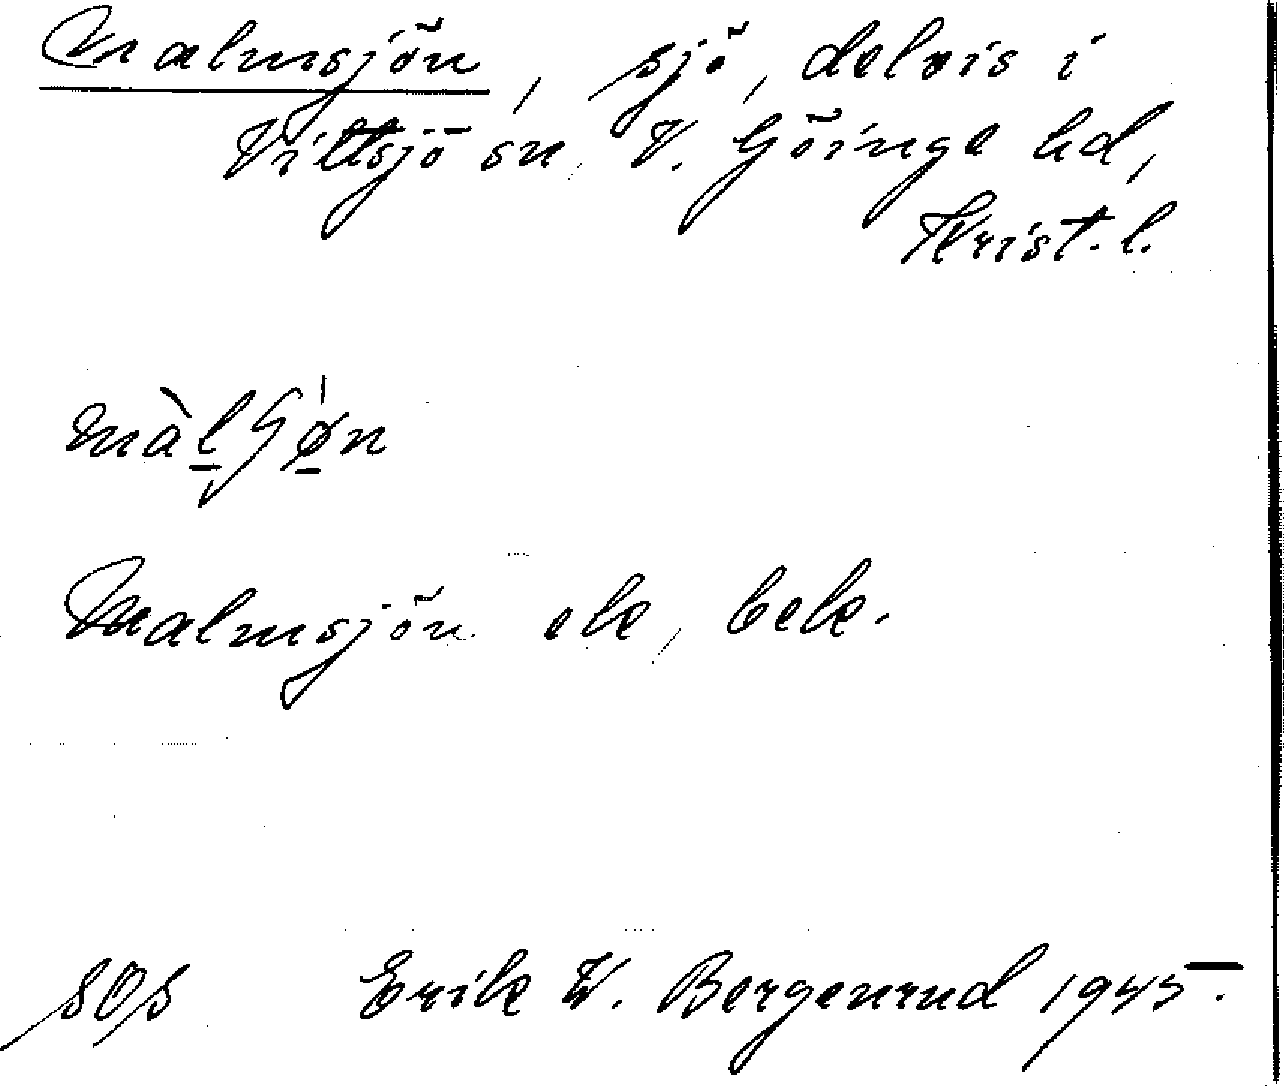 Malmsjön, sjö, delvis i
Vittsjö sn, V. Göinge hd,
Krist. l.
Malmsjön ek, bek.
Erik W. Bergenrud 1945.